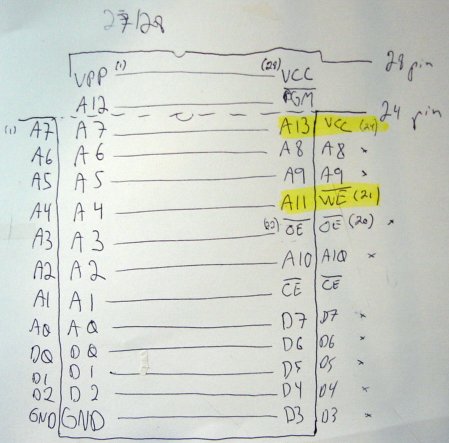 27/28
VPP (1) (28) VCC 28 pin
A12 PGM
24 pin
(1) A7 A7 A13 VCC (24)
A6 A6 A8 A8 x
A5 A5 A9 A9 x
A4 A4 A11 WE (21)
A3 A3 (22) OE OE (20) x
A2 A2 A10 A10 x
A1 A1 CE CE
A0 A0 D7 D7 x
D0 D0 D6 D6 x
D1 D1 D5 D5 x
D2 D2 D4 D4 x
GND GND D3 D3 x